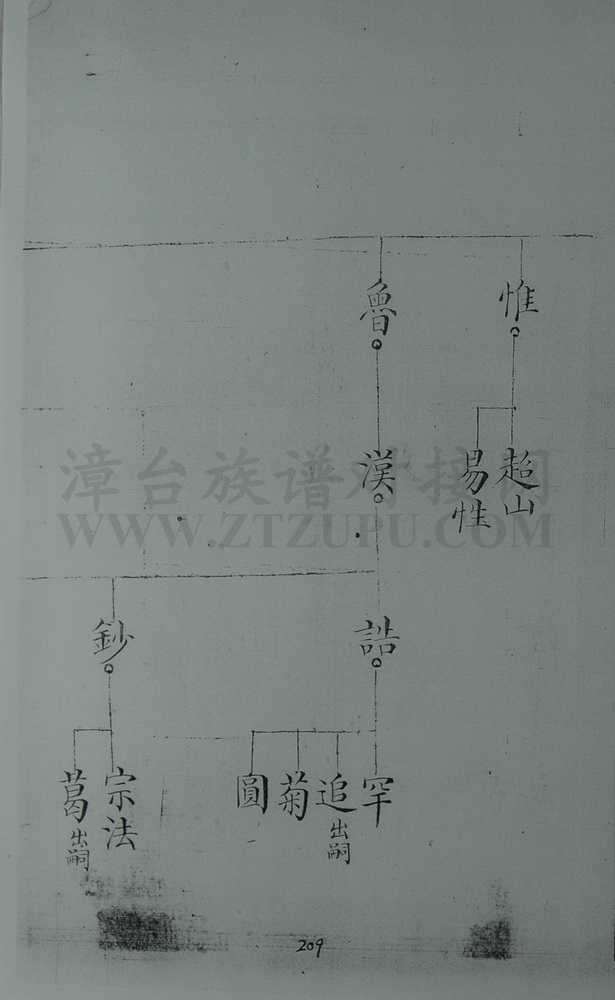 惟
魯
超山
易性
漢
誥
鈔
罕
追出嗣
菊
圓
宗法
葛出嗣
漳台族谱对接网
WWW.ZTZUPU.COM
209